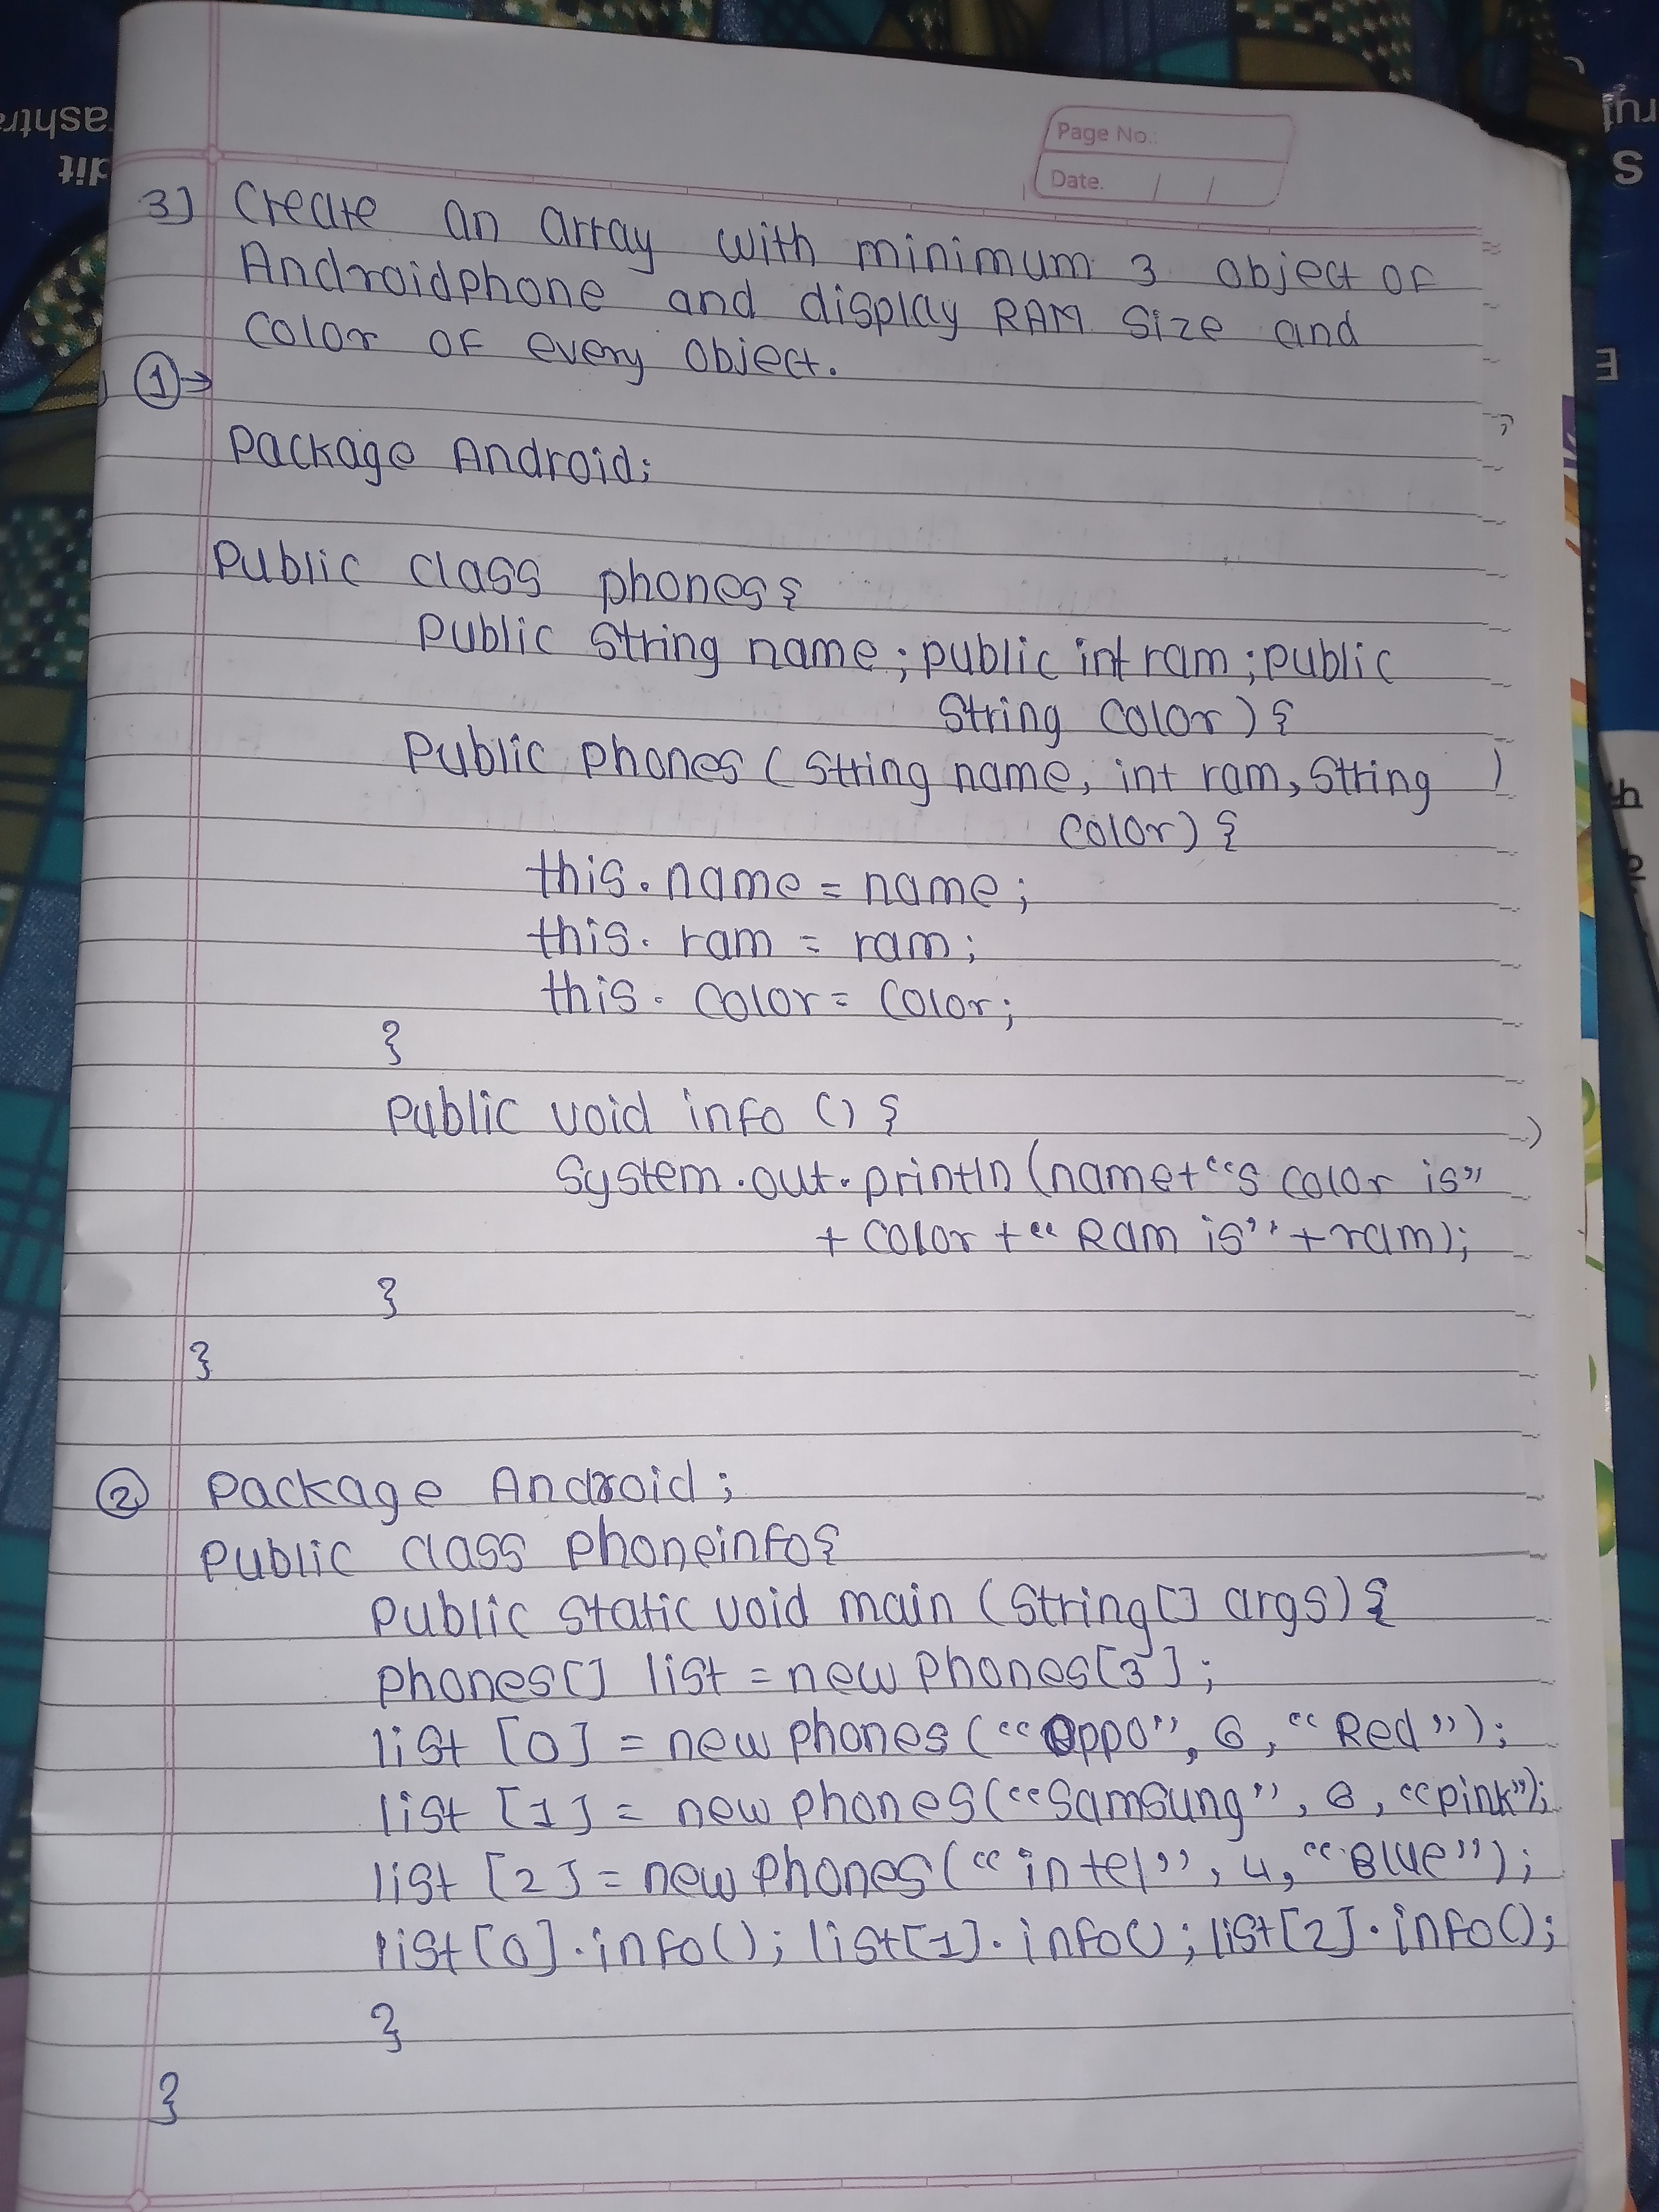 Page No.:
Date. / /
3) Create an array with minimum 3 object of
Androidphone and display RAM Size and
Color of every object.
①→
Package Android;
Public class phones{
Public String name; public int ram; public
String color) {
Public phones (String name, int ram, String
color) {
this.name = name;
this. ram = ram;
this. color = color;
}
Public void info () {
System.out.println (name+"s color is"
+ color +" Ram is"+ram);
}
}
② Package Android;
Public class phoneinfo{
Public static void main (String[] args) {
phones[] list = new phones[3];
list [0] = new phones ("Oppo", 6, "Red");
list [1] = new phones("Samsung", 6, "pink");
list [2] = new phones ("intel", 4, "Blue");
list[0].info(); list[1].info(); list[2].info();
}
}